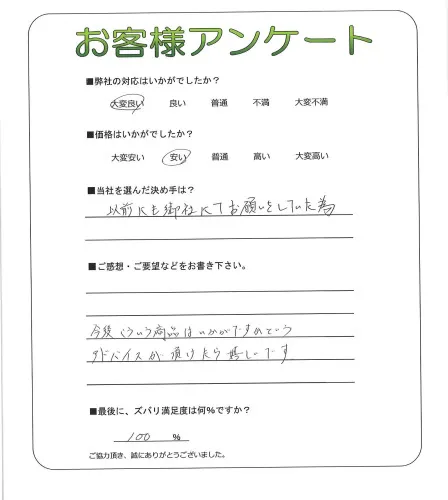 お客様アンケート
■弊社の対応はいかがでしたか？
大変良い 良い 普通 不満 大変不満
■価格はいかがでしたか？
大変安い 安い 普通 高い 大変高い
■当社を選んだ決め手は？
以前にも御社にてお願いをしていた為
■ご感想・ご要望などをお書き下さい。
今後こういう商品はいかがですかという
アドバイスが頂けたら嬉しいです
■最後に、ズバリ満足度は何%ですか？
100 %
ご協力頂き、誠にありがとうございました。